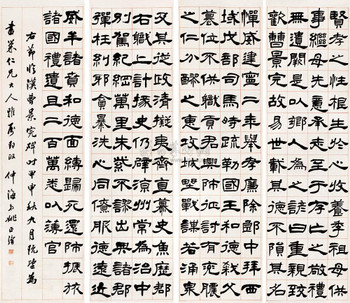 賢孝之性根生於心收養季祖母供
事繼母先意承志存亡之敬禮
無遺闕是以鄉人為之諺曰重親致
歡曹景完易世載德不隕其名
憚威建寧二年舉孝廉除郎中拜西
域戊部司馬時疏勒國王和德弒父
篡位不供職貢君興師征討有兗膿
之仁分醪之惠攻城野戰謀若涌泉
及其從政清擬夷齊直慕史魚歷郡
右職上計掾史仍辟涼州常為治中
別駕紀綱萬里朱紫不謬出典諸郡
彈枉糾邪貪暴洗心同僚服德遠近
威牟諸賁和德面縛歸死還師振旅
諸國禮遺且二百萬悉以薄官
右節臨漢曹景完碑時甲申秋九月既望為
仁兄大人雅屬即政仲海